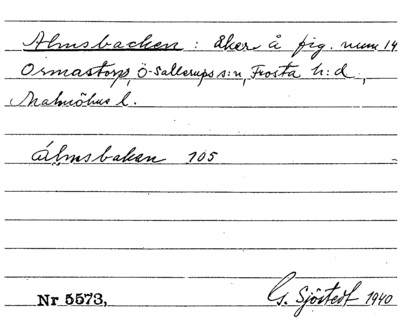 Almsbacken : åker å fig. num 14
Ormastorp, Ö-Sallerups s:n, Frosta h:d,
Malmöhus l.
Älmsbaken 105
Nr 5573,
G. Sjöstedt 1940